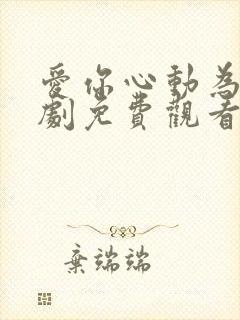 愛你心動為
劇免費觀看
棄端端